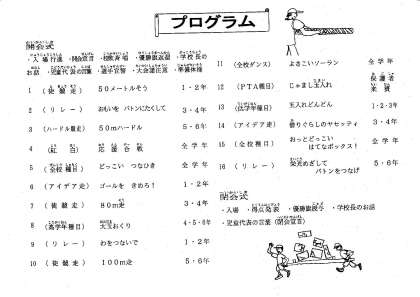 プログラム
開会式
・入場行進・開会宣言・校歌斉唱・優勝旗返還・学校長の
お話・児童代表の言葉・選手宣誓・大会諸注意・準備体操
1 (徒競走) 50メートルそう 1・2年
2 (リレー) おもいを バトンにたくして 3・4年
3 (ハードル競走) 50mハードル 5・6年
4 (紅白) 応援合戦 全学年
5 (全校種目) どっこい つなひき 全学年
6 (アイデア走) ゴールを きめろ! 1・2年
7 (徒競走) 80m走 3・4年
8 (高学年種目) 大玉おくり 4・5・6年
9 (リレー) わをつないで 1・2年
10 (徒競走) 100m走 5・6年
11 (全校ダンス) よさこいソーラン 全学年
12 (PTA種目) じゃまし玉入れ 保護者 来賓
13 (低学年種目) 玉入れどんどん 1・2・3年
14 (アイデア走) 借りぐらしのヤセッティ 3・4年
15 (全校種目) おっとどっこい はてなボックス! 全学年
16 (リレー) 栄光めざして バトンをつなげ 5・6年
閉会式
・入場 ・得点発表 ・優勝旗授与 ・学校長のお話
・児童代表の言葉(閉会宣言)